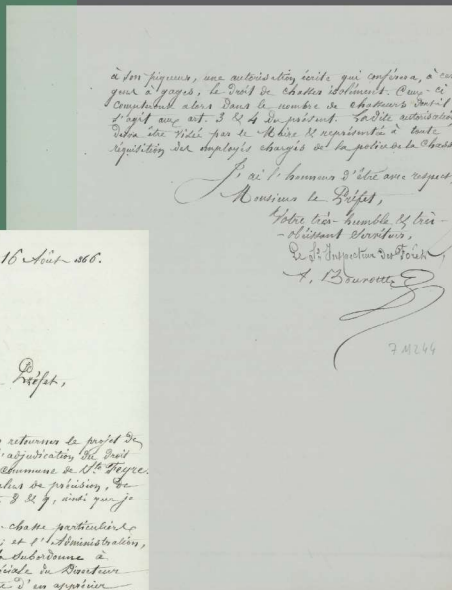 à son piqueur, une autorisation écrite qui conférera, à ces
gens à gages, le droit de chasser isolément. Ceux-ci
compteront alors dans le nombre de chasseurs dont il
s'agit aux art. 3 & 4 du présent. Ladite autorisation
devra être visée par le Maire & représentée à toute
réquisition des employés chargés de la police de la Chasse
J'ai l'honneur d'être avec respect,
Monsieur le Préfet,
Votre très-humble & très-
-obéissant serviteur,
Le S. Inspecteur des Forêts,
A. Bourotte
7 M 244
16 Août 1866.
Préfet,
retourner le projet de
adjudication du droit
commune de Ste Feyre.
plus de précision, de
3 & 9, ainsi que je
chasse particuliers
et l'Administration,
la subordonne à
du Directeur
d'en apprécier